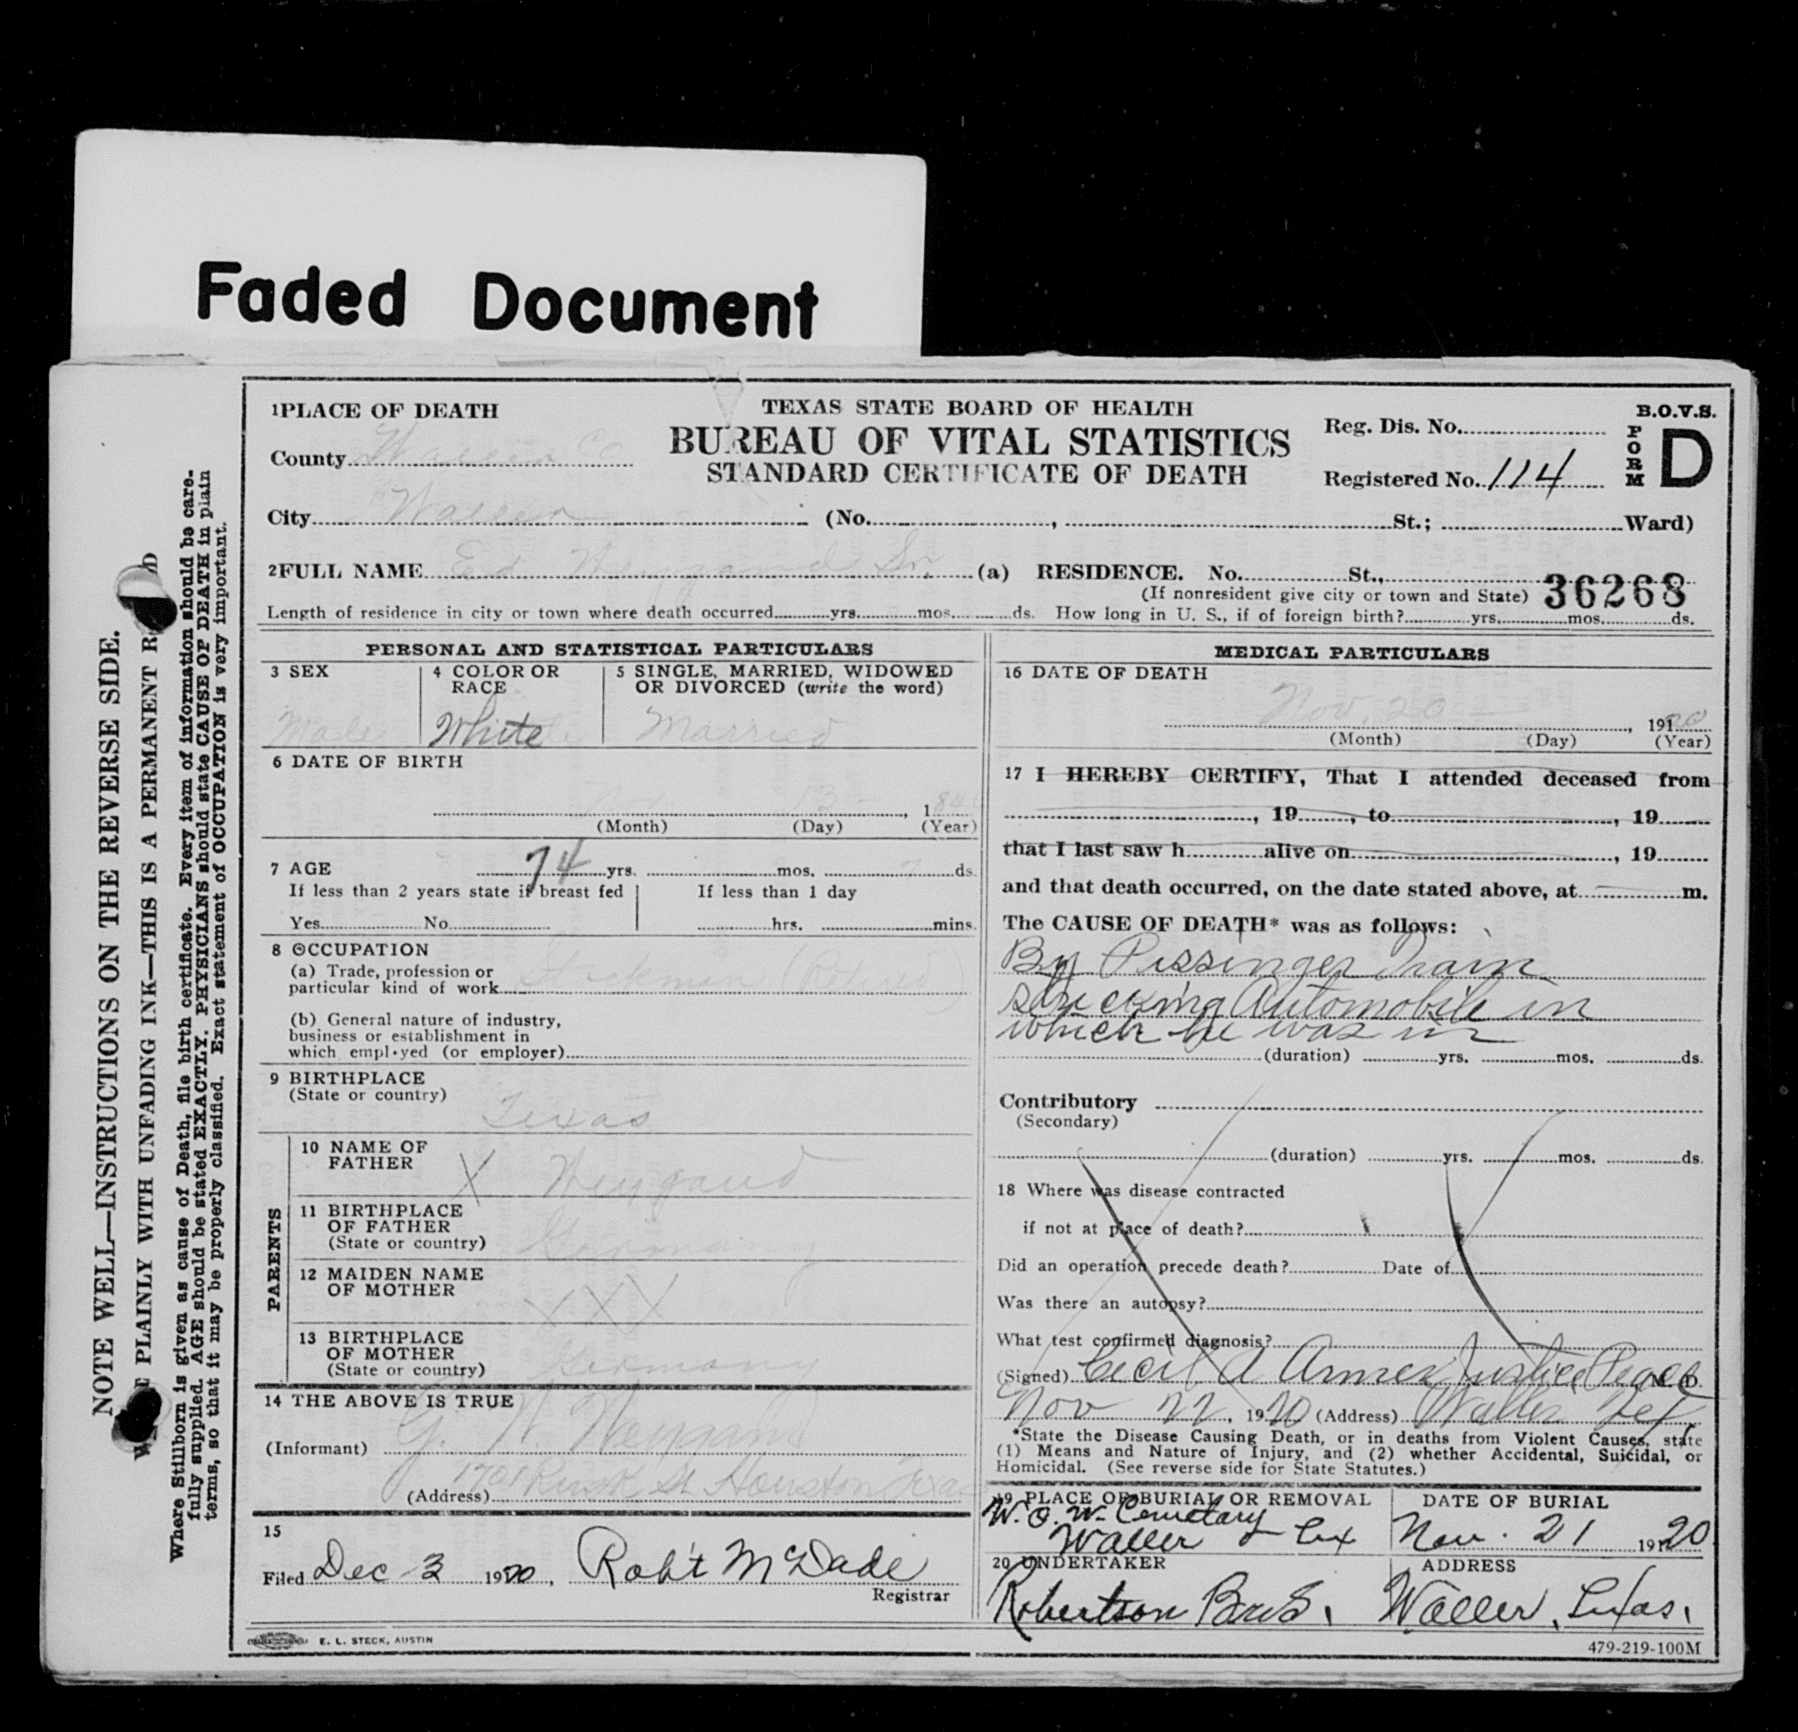 Faded Document
NOTE WELL—INSTRUCTIONS ON THE REVERSE SIDE.
PLAINLY WITH UNFADING INK—THIS IS A PERMANENT
Where Stillborn is given as cause of Death, file birth certificate. Every item of information should be care-
fully supplied. AGE should be stated EXACTLY. PHYSICIANS should state CAUSE OF DEATH in plain
terms, so that it may be properly classified. Exact statement of OCCUPATION is very important.
1 PLACE OF DEATH
TEXAS STATE BOARD OF HEALTH
BUREAU OF VITAL STATISTICS
STANDARD CERTIFICATE OF DEATH
Reg. Dis. No.
Registered No. 114
B.O.V.S.
FORM D
County Waller Co
City Waller (No. , St.; Ward)
2 FULL NAME Ed Weygand Sr. (a) RESIDENCE. No. St.,
(If nonresident give city or town and State) 36268
Length of residence in city or town where death occurred yrs. mos. ds. How long in U. S., if of foreign birth? yrs. mos. ds.
PERSONAL AND STATISTICAL PARTICULARS
3 SEX
Male
4 COLOR OR RACE
White
5 SINGLE, MARRIED, WIDOWED
OR DIVORCED (write the word)
Married
6 DATE OF BIRTH
, 1
(Month) (Day) (Year)
7 AGE 74 yrs. mos. ds.
If less than 2 years state if breast fed
Yes No
If less than 1 day
hrs. mins.
8 OCCUPATION
(a) Trade, profession or
particular kind of work Stockman (Retired)
(b) General nature of industry,
business or establishment in
which employed (or employer)
9 BIRTHPLACE
(State or country) Texas
PARENTS
10 NAME OF
FATHER X Weygand
11 BIRTHPLACE
OF FATHER
(State or country) Germany
12 MAIDEN NAME
OF MOTHER X X X
13 BIRTHPLACE
OF MOTHER
(State or country) Germany
14 THE ABOVE IS TRUE
(Informant) G. W. Weygand
(Address) 1701 Rusk St Houston Texas
15
Filed Dec 3 1920, Rob't McDade
Registrar
E. L. STECK, AUSTIN
MEDICAL PARTICULARS
16 DATE OF DEATH
Nov. 20 , 1920
(Month) (Day) (Year)
17 I HEREBY CERTIFY, That I attended deceased from
, 19 , to , 19
that I last saw h alive on , 19
and that death occurred, on the date stated above, at m.
The CAUSE OF DEATH* was as follows:
By Pissinger Train
strucking Automobile in
which he was in
(duration) yrs. mos. ds.
Contributory
(Secondary)
(duration) yrs. mos. ds.
18 Where was disease contracted
if not at place of death?
Did an operation precede death? Date of
Was there an autopsy?
What test confirmed diagnosis?
(Signed) Cecil A Armes Justice Peace M. D.
Nov 22, 1920 (Address) Waller Tex
*State the Disease Causing Death, or in deaths from Violent Causes, state
(1) Means and Nature of Injury, and (2) whether Accidental, Suicidal, or
Homicidal. (See reverse side for State Statutes.)
19 PLACE OF BURIAL OR REMOVAL
W. O. W. Cemetary
Waller Tex
DATE OF BURIAL
Nov. 21 1920
20 UNDERTAKER
Robertson Bros.
ADDRESS
Waller, Texas.
479-219-100M